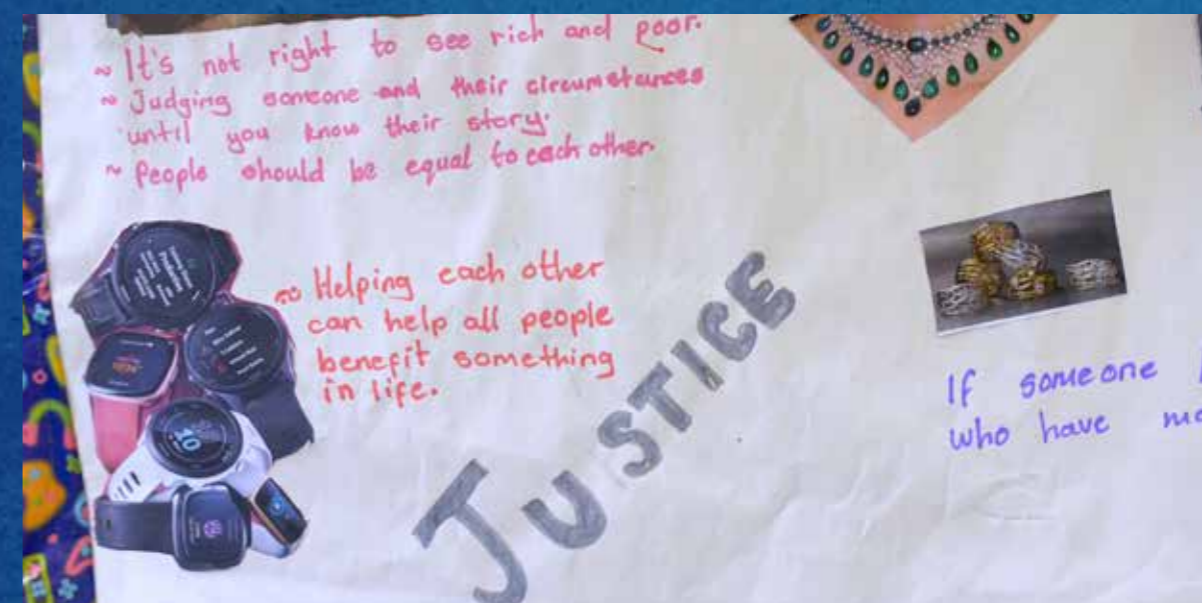 ~ It's not right to see rich and poor.
~ Judging someone and their circumstances
until you know their story.
~ People should be equal to each other.
~ Helping each other
can help all people
benefit something
in life.
JUSTICE
10
If someone
who have